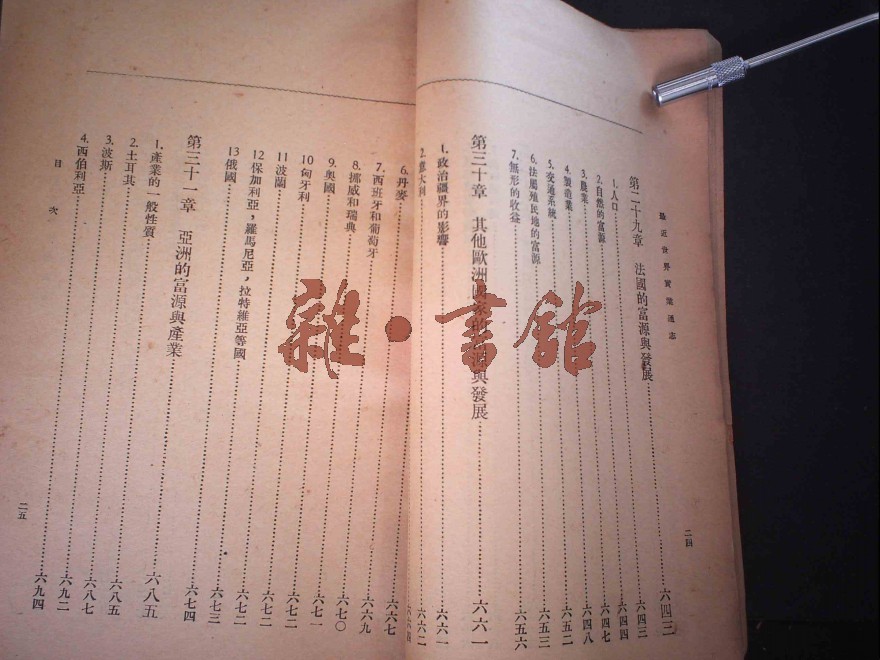 最近世界實業通志
第二十九章 法國的富源與發展 六四三
1. 人口 六四三
2. 自然的富源 六四四
3. 農業 六四七
4. 製造業 六四八
5. 交通系統 六五二
6. 法屬殖民地的富源 六五三
7. 無形的收益 六五六
第三十章 其他歐洲國家的富源與發展 六六一
1. 政治疆界的影響 六六一
2. 意大利 六六二
二四
六六七
6. 丹麥 六六九
7. 西班牙和葡萄牙 六七〇
8. 挪威和瑞典 六七一
9. 奧國 六七二
10 匈牙利 六七二
11 波蘭 六七二
12 保加利亞，羅馬尼亞，拉特維亞等國 六七三
13 俄國 六七四
第三十一章 亞洲的富源與產業 六八五
1. 產業的一般性質 六八五
2. 土耳其 六八七
3. 波斯 六九二
4. 西伯利亞 六九四
目次
二五
雜·書館